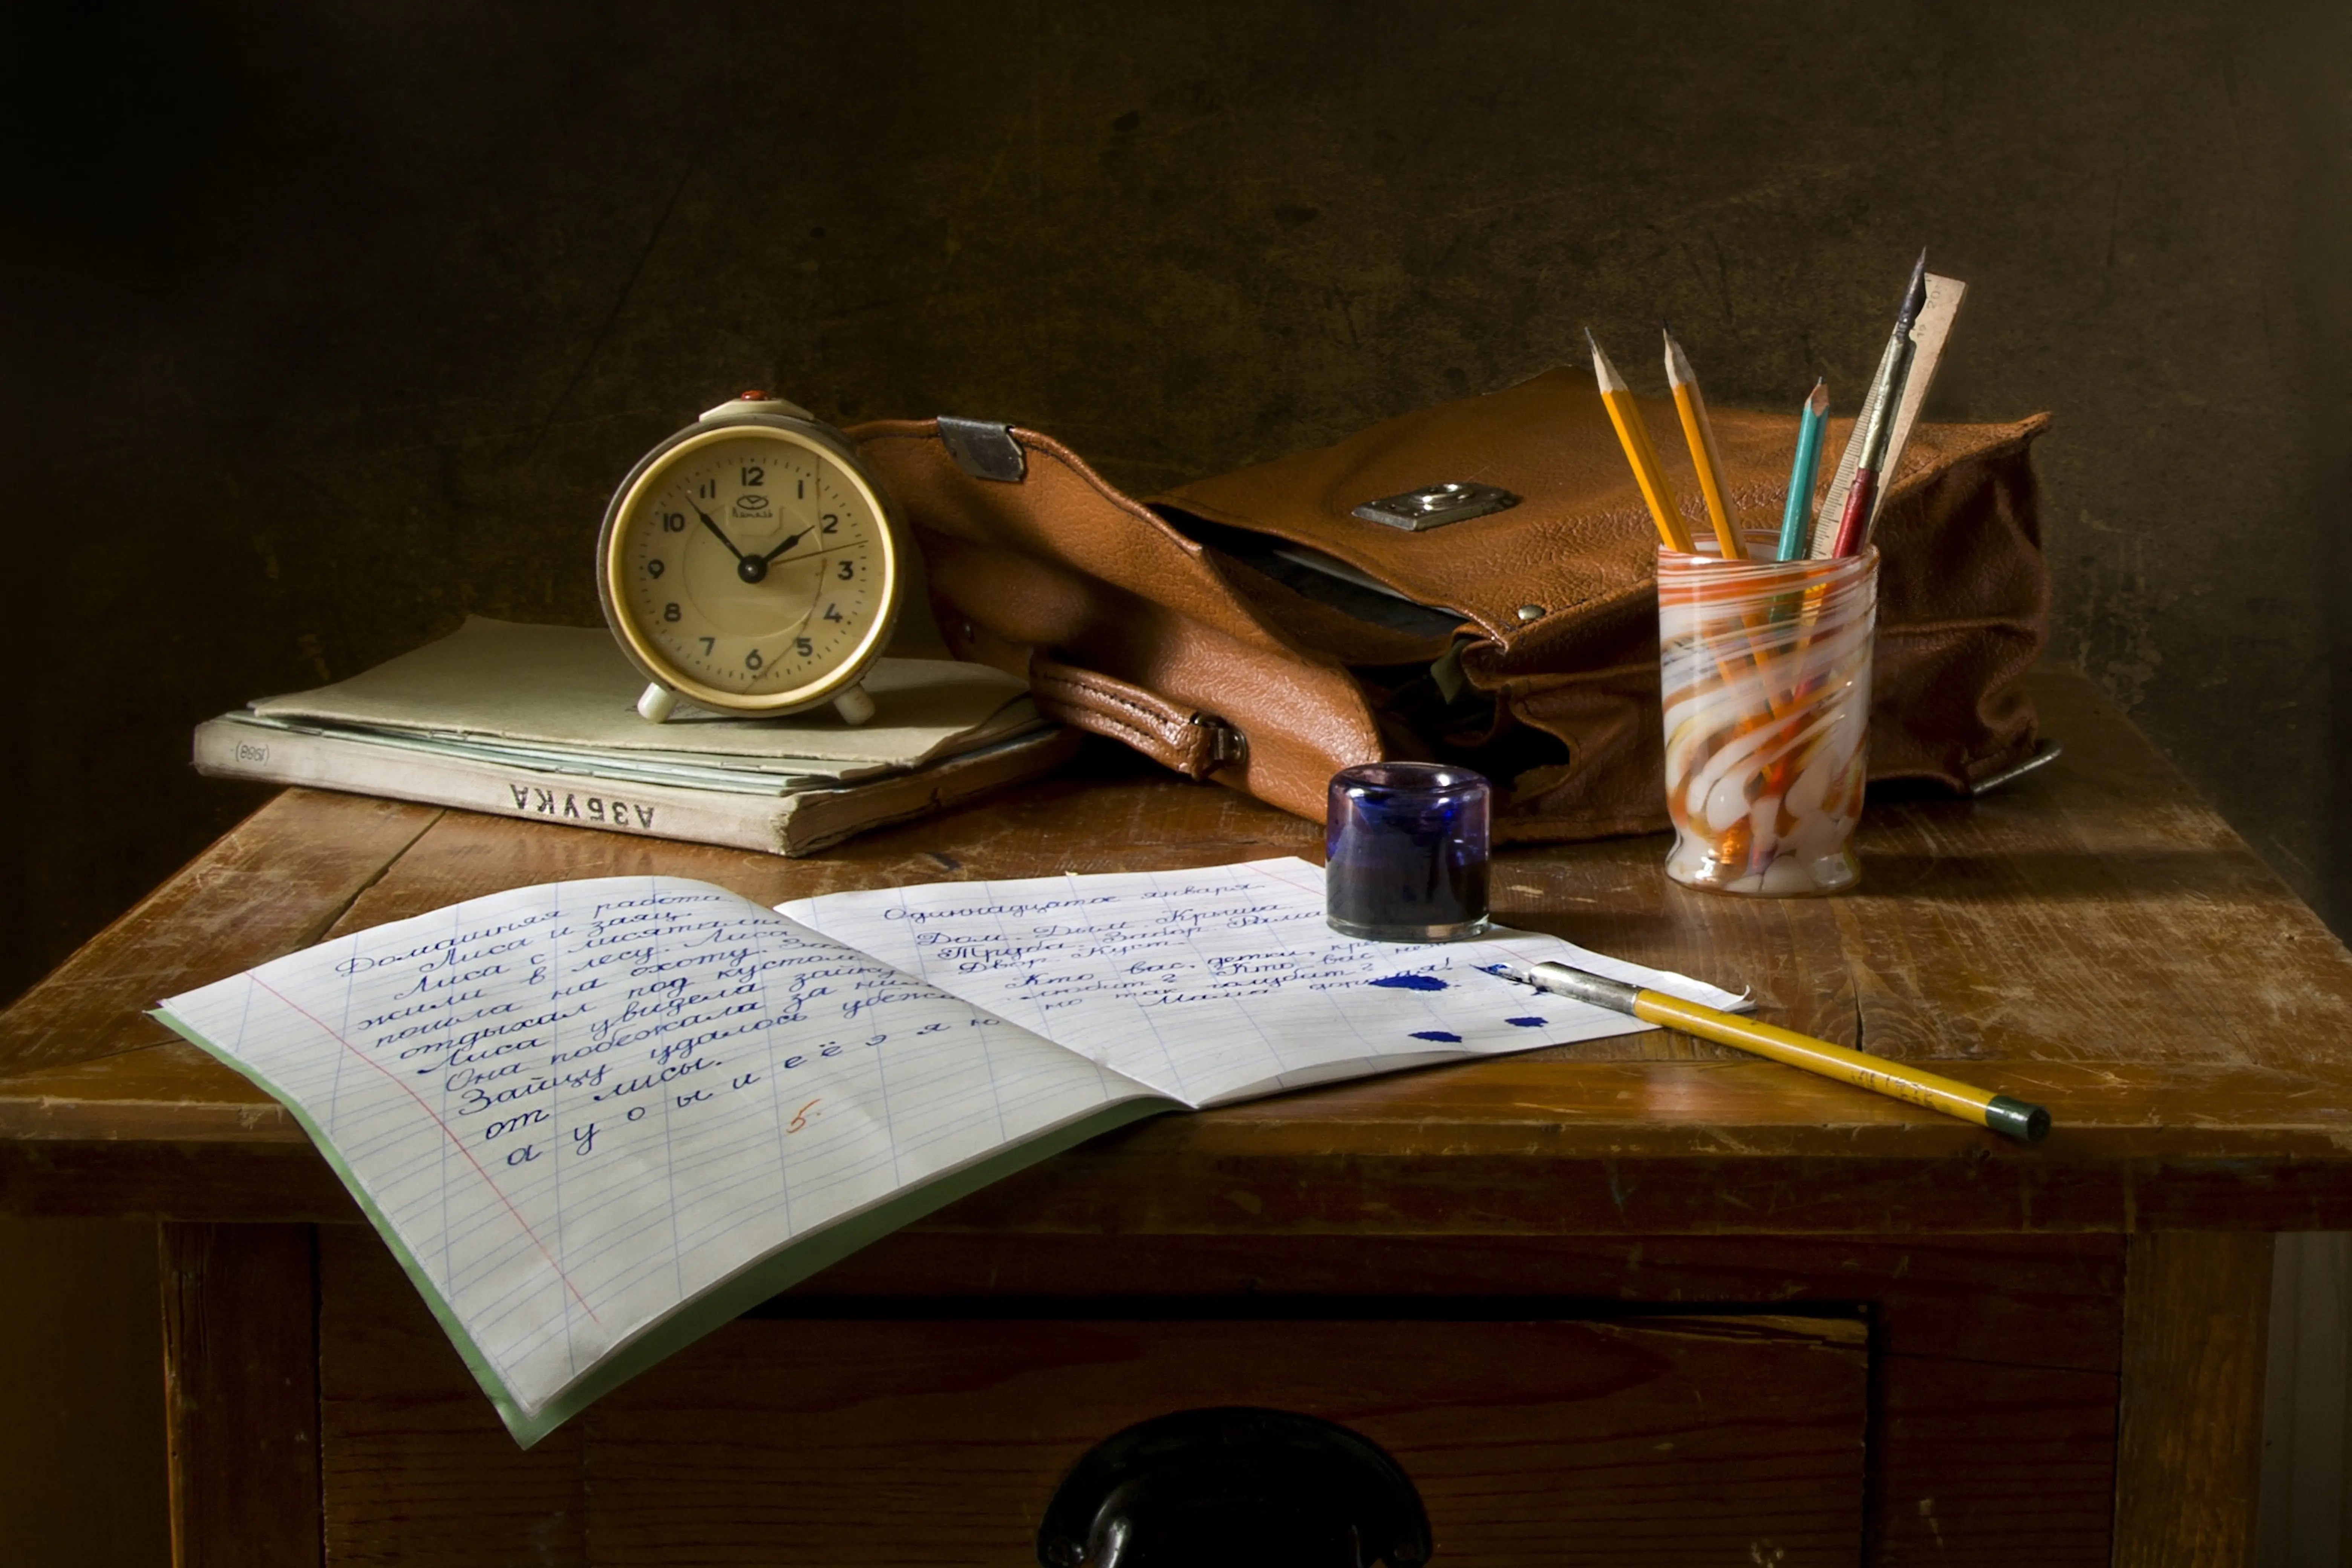 12
11 1
10 2
9 3
8 4
7 5
6
(1988)
АЗБУКА
20
Домашняя работа
Лиса и заяц.
Лиса с лисятами
жили в лесу. Лиса
пошла на охоту.
отдыхал под кустом
Лиса увидела зайку
Она побежала за ним
Зайцу удалось
от лисы.
а у о ы и е ё э я ю
5
Одиннадцатое января
Дом. Дым. Крыша.
Труба. Забор. Рама
Двор. Куст.
Кто вас, детки,
любит? Кто вас
но так голубит?
Мама